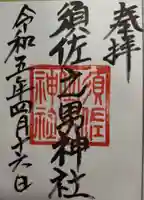 奉拝
須佐之男神社
須佐之男神社
令和五年四月十六日